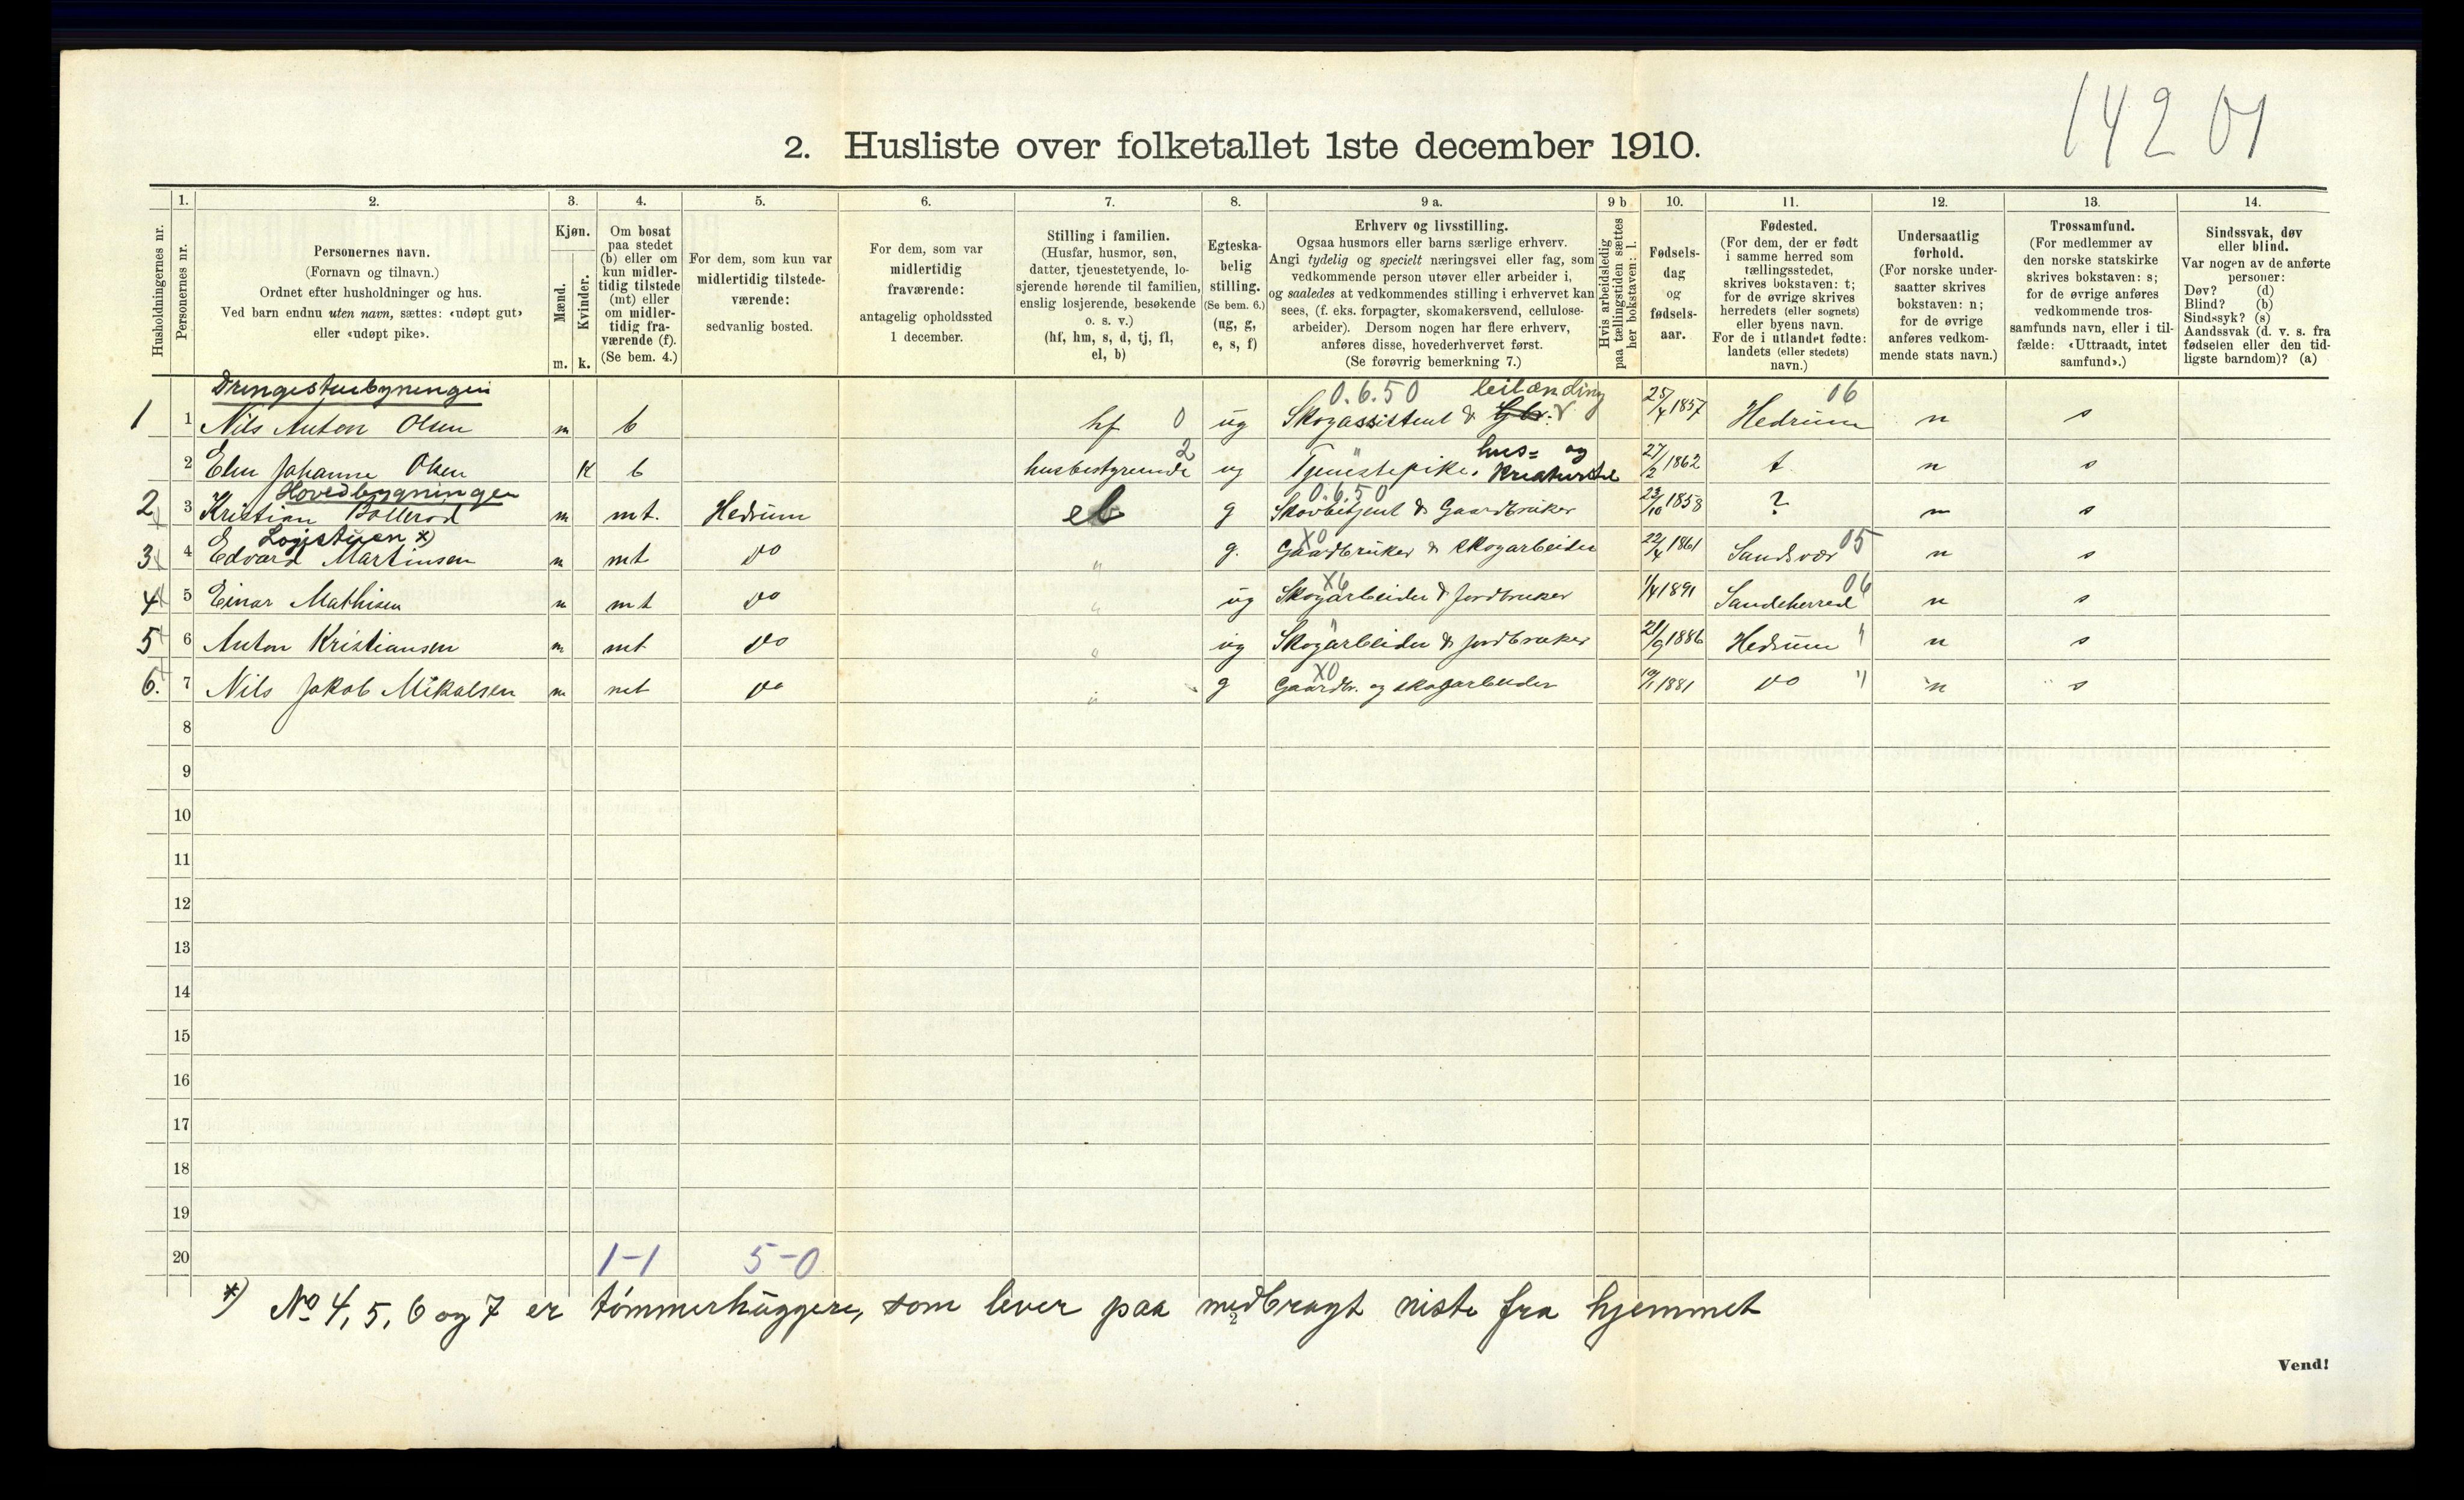 14201
2. Husliste over folketallet 1ste december 1910.
Husholdningernes nr.
1.
Personernes nr.
2.
Personernes navn.
(Fornavn og tilnavn.)
Ordnet efter husholdninger og hus.
Ved barn endnu uten navn, sættes: «udøpt gut»
eller «udøpt pike».
3.
Kjøn.
Mænd.
Kvinder.
m. k.
4.
Om bosat
paa stedet
(b) eller om
kun midler-
tidig tilstede
(mt) eller
om midler-
tidig fra-
værende (f).
(Se bem. 4.)
5.
For dem, som kun var
midlertidig tilstede-
værende:
sedvanlig bosted.
6.
For dem, som var
midlertidig
fraværende:
antagelig opholdssted
1 december.
7.
Stilling i familien.
(Husfar, husmor, søn,
datter, tjenestetyende, lo-
sjerende hørende til familien,
enslig losjerende, besøkende
o. s. v.)
(hf, hm, s, d, tj, fl,
el, b)
8.
Egteska-
belig
stilling.
(Se bem. 6.)
(ug, g,
e, s, f)
9 a.
Erhverv og livsstilling.
Ogsaa husmors eller barns særlige erhverv.
Angi tydelig og specielt næringsvei eller fag, som
vedkommende person utøver eller arbeider i,
og saaledes at vedkommendes stilling i erhvervet kan
sees, (f. eks. forpagter, skomakersvend, cellulose-
arbeider). Dersom nogen har flere erhverv,
anføres disse, hovederhvervet først.
(Se forøvrig bemerkning 7.)
9 b
Hvis arbeidsledig
paa tællingstiden sættes
her bokstaven: l.
10.
Fødsels-
dag
og
fødsels-
aar.
11.
Fødested.
(For dem, der er født
i samme herred som
tællingsstedet,
skrives bokstaven: t;
for de øvrige skrives
herredets (eller sognets)
eller byens navn.
For de i utlandet fødte:
landets (eller stedets)
navn.)
12.
Undersaatlig
forhold.
(For norske under-
saatter skrives
bokstaven: n;
for de øvrige
anføres vedkom-
mende stats navn.)
13.
Trossamfund.
(For medlemmer av
den norske statskirke
skrives bokstaven: s;
for de øvrige anføres
vedkommende tros-
samfunds navn, eller i til-
fælde: «Uttraadt, intet
samfund».)
14.
Sindssvak, døv
eller blind.
Var nogen av de anførte
personer:
Døv? (d)
Blind? (b)
Sindssyk? (s)
Aandssvak (d. v. s. fra
fødselen eller den tid-
ligste barndom)? (a)
Drengestuebygningen 0.6.50 leilænding 06
1 1 Nils Anton Olsen m b hf 0 ug Skogassistent & Gbr. 25/4 1857 Hedrum n s
2 hus= og
2 Elen Johanne Olsen k b husbestyrende ug Tjenestepike, Kreaturstel 27/2 1862 t n s
Hovedbygningen 0.6.50
2 3 Kristian Bollerød m mt. Hedrum eb g Skovbetjent & Gaardbruker 23/10 1858 ? n s
Logistuen *) X0
3 4 Edvard Martinsen m mt do " g. Gaardbruker & skogarbeider 22/4 1861 Sandsvær 05 n s
X6 06
4 5 Einar Mathisen m mt do " ug Skogarbeider & jordbruker 1/4 1891 Sandeherred n s
5 6 Anton Kristiansen m mt do " ug Skogarbeider & jordbruker 21/9 1886 Hedrum " n s
X0
6. 7 Nils Jakob Mikalsen m mt do " g Gaardbr. og skogarbeider 19/1 1881 do " n s
8
9
10
11
12
13
14
15
16
17
18
19
20 1-1 5-0
*) No 4, 5, 6 og 7 er tømmerhuggere, som lever paa medbragt niste fra hjemmet
2
Vend!